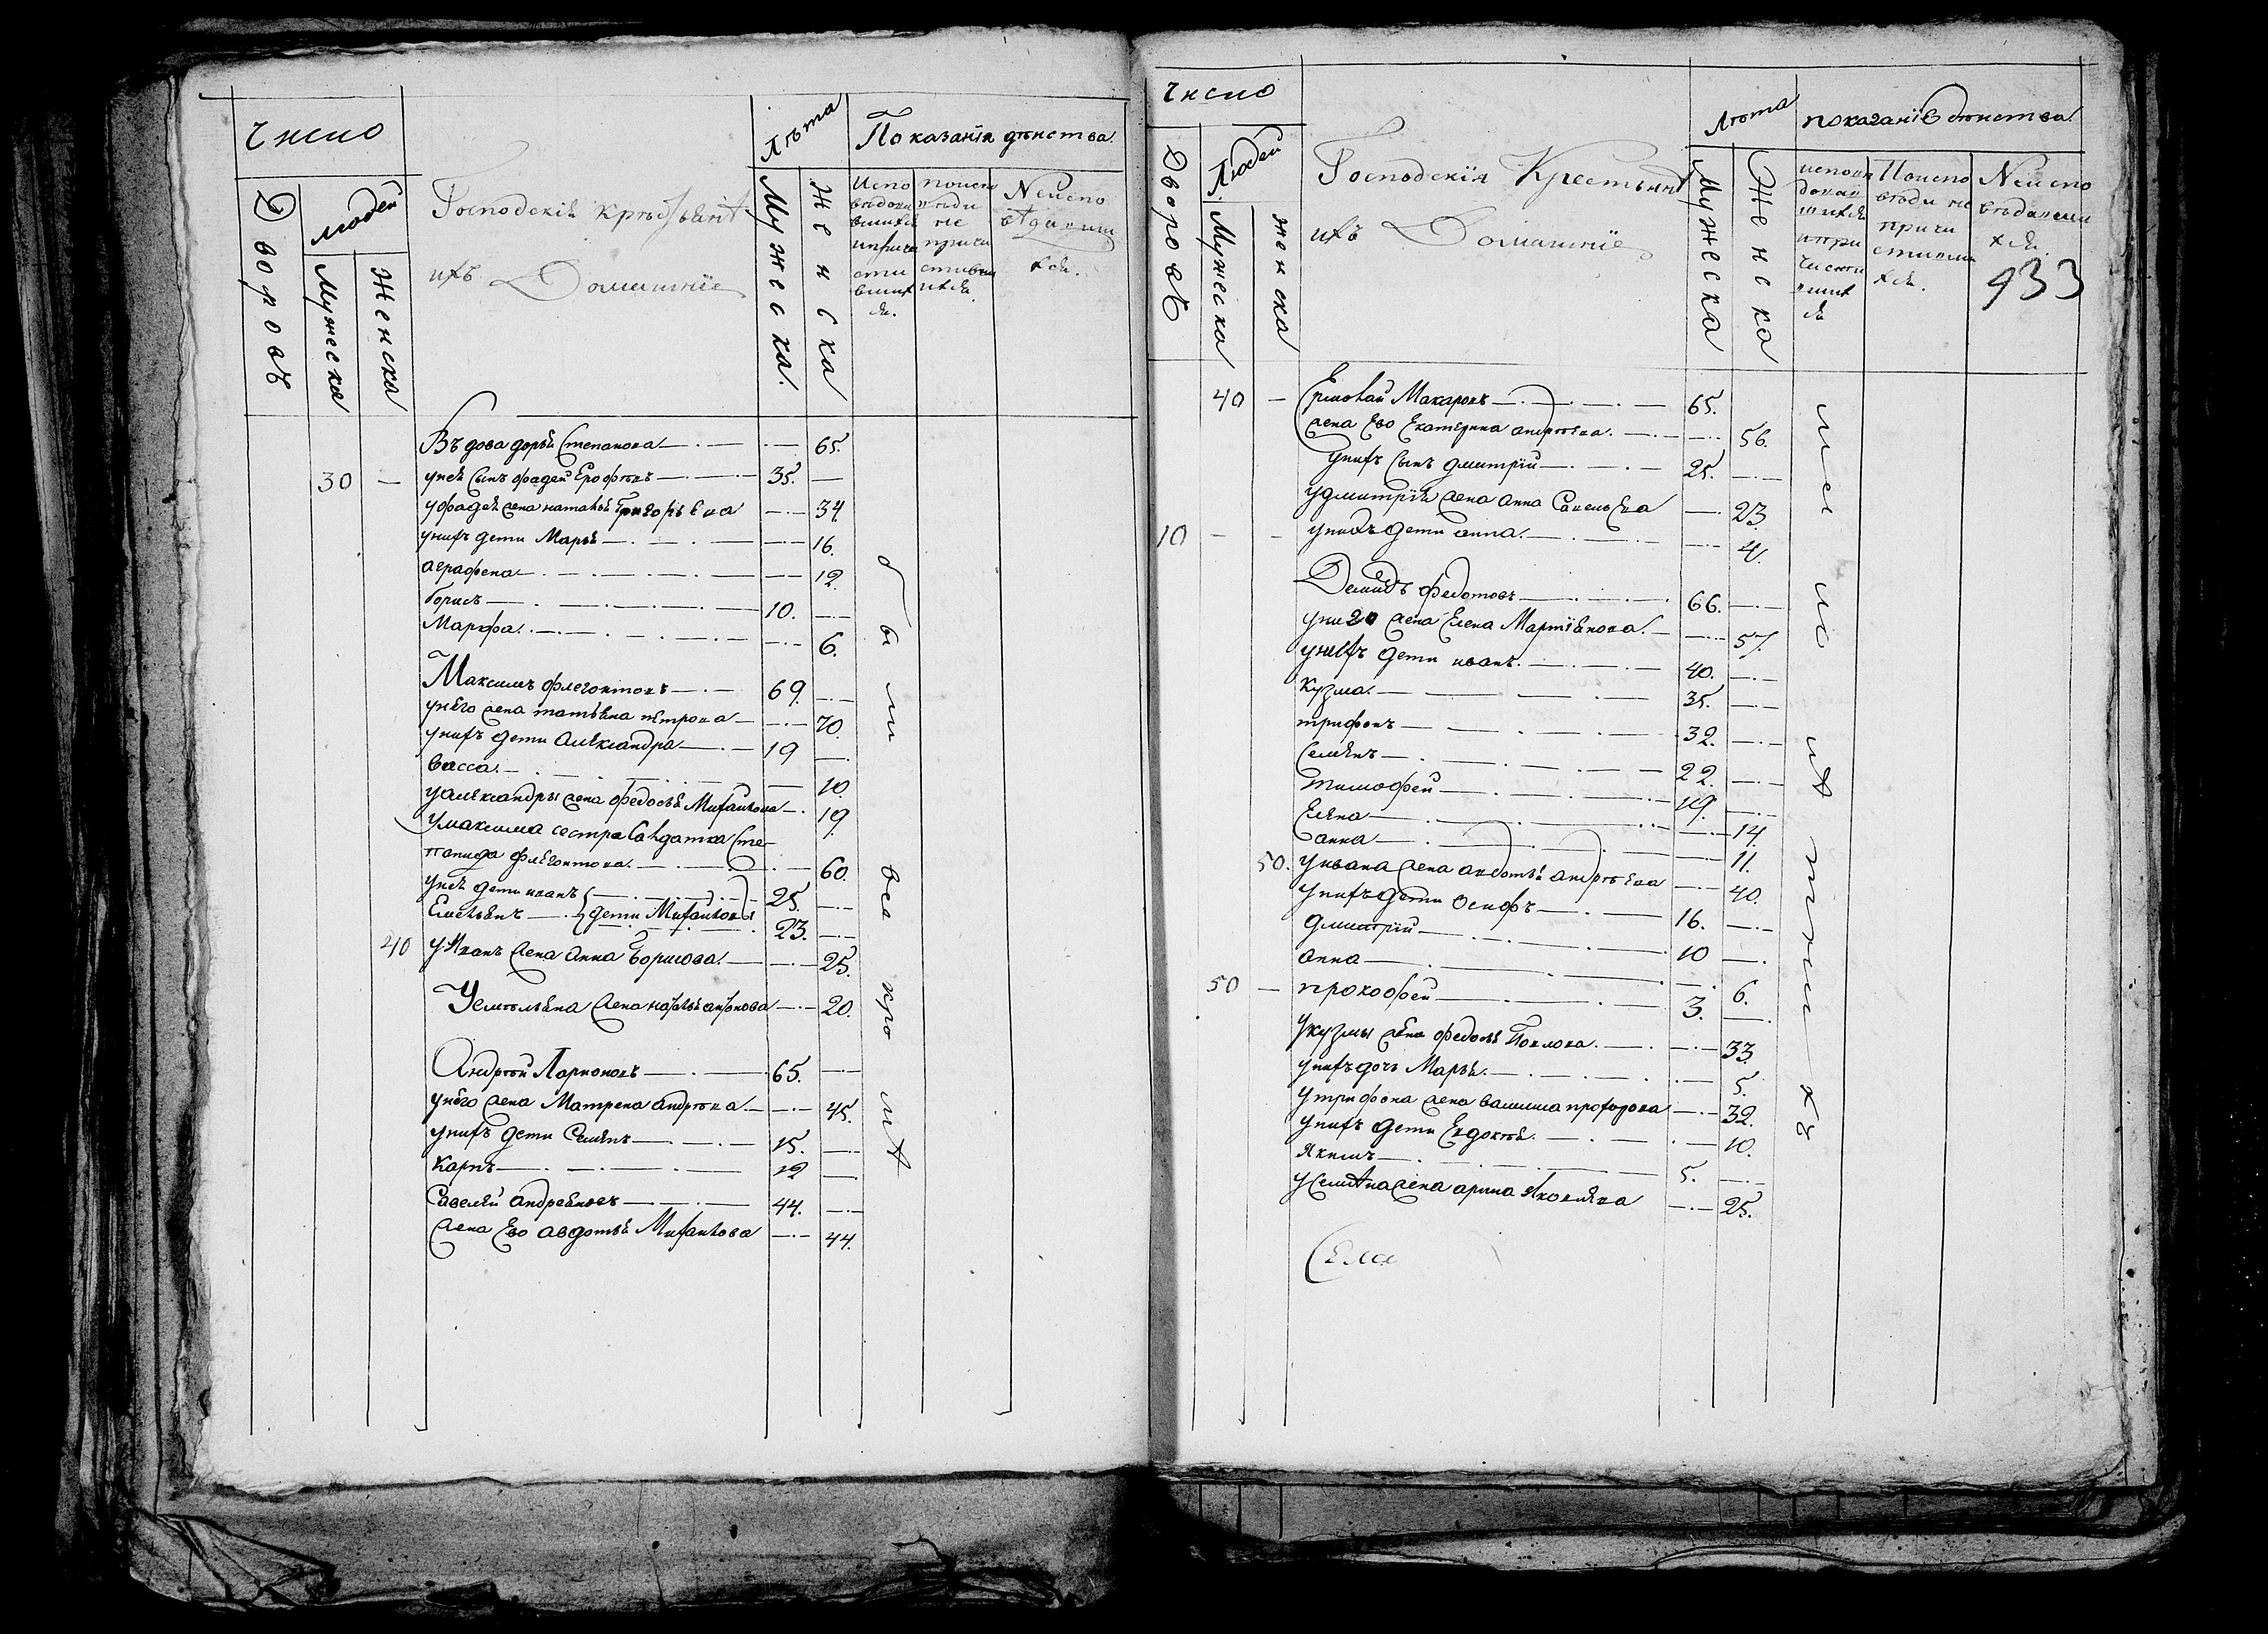 Число
Лѣта
Показанія дѣиства
Дворовъ
людей
Мужеска
Женска
Господскія крестьянѣ
ихъ Домашніе
Мужеска.
Женска
Испо
вѣдови
вшихся
ипричи
сти
вших
ся.
поиспо
вѣди
не
причи
стивш
ихся.
Неиспо
вѣдавши
хся.
Въдова дорья Степанова 65.
30 — унея Сынъ фадей Ерофѣевъ 35.
уфадея жена наталья Григорьева 34
унихъ дети Марья 16.
аграфена 12.
борисъ 10.
Марфа. 6.
Максимъ флегонтовъ 69.
унего жена татьяна петрова 70.
унихъ дети Александра 19
васса. 10.
уалександры жена федосья Михайлова 19
умаксима сестра Салдатка Сте-
панида флегонтова. 60.
унея дети иванъ 25.
Емельянъ дети Михайловы 23.
40 уИвана жена анна Борисова. 25.
Уемельяна жена наталья антонова 20.
Андрѣй Ларионовъ 65.
унего жена Матрена андрѣева. 45.
унихъ дети Семѣнъ 15.
Карпъ 12
Савелей андреяновъ 44.
жена Ево авдотья Михайлова 44.
были все кро мѣ
Число
Лѣта
показаніе дѣиства
933
Дворовъ
Людей
Мужеска
женска
Господскія Крестьянѣ
ихъ Домашніе
Мужеска
Женска
исповѣ
довав
шихся
ипри
части
вших
ся
Поиспо
вѣди не
причи
стивши
хся.
Неиспо
вѣдавши
хся.
40 — Ермолай Макаровъ 65.
жена Ево Екатерина андрѣева. 56.
унихъ Сынъ дмитрій 25.
удмитрія жена анна Савельева 23.
10 — — унихъ дети анна. 4.
Демидъ федотовъ 66.
унего жена Елена Мартіянова. 57.
унихъ дети иванъ. 40.
кузма. 35.
трифонъ 32.
Семѣнъ 22.
тимофей 19.
Елена 14.
анна 11.
50. уивана жена авдотья андрѣева 40.
унихъ дети осифъ 16.
дмитрій 10
анна 6.
50 — прокофей 3.
укузмы жена федосья Павлова. 33.
унихъ дочь Марья. 5.
утрифона жена василиса прохорова 32.
унихъ дети Евдокея. 10.
якимъ 5.
уСемѣна жена арина Яковлева 25.
мало лѣтнихъ
Семе